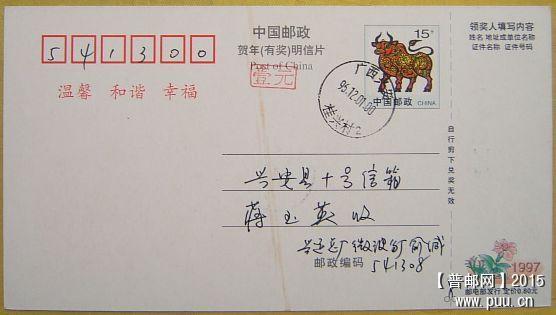 中国邮政
贺年(有奖)明信片
Post of China
壹元
15分
中国邮政 CHINA
领奖人填写内容
姓名 地址或单位名称
证件名称 证件号码
541300
温馨 和谐 幸福
广西
95.12.01.00
桂兴村2
自行剪下兑奖无效
兴安县十号信箱
蒋玉英收
邮政编码 541308
1997
邮电部发行 定价0.60元
【普邮网】2015
www.puu.cn